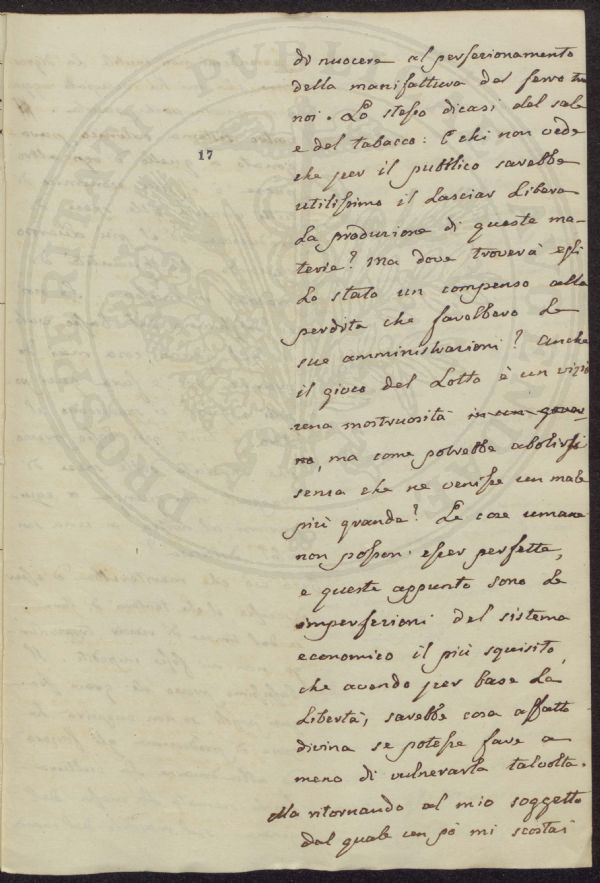 17
di nuocere al perfezionamento
della manifattura del ferro tra
noi. Lo stesso dicasi del sale
e del tabacco: E chi non vede
che per il pubblico sarebbe
utilissimo il lasciar libera
la produzione di queste ma-
terie? Ma dove troverà egli
lo stato un compenso alla
perdita che farebbero le
sue amministrazioni? Anche
il gioco del Lotto è un vizio
una mostruosità in un gover-
no, ma come potrebbe abolirsi
senza che ne venisse un male
più grande? Le cose umane
non posson' esser perfette,
e queste appunto sono le
imperfezioni del sistema
economico il più squisito,
che avendo per base la
libertà, sarebbe cosa affatto
divina se potesse fare a
meno di vulnerarla talvolta.
Ma ritornando al mio soggetto
dal quale un pò mi scostai